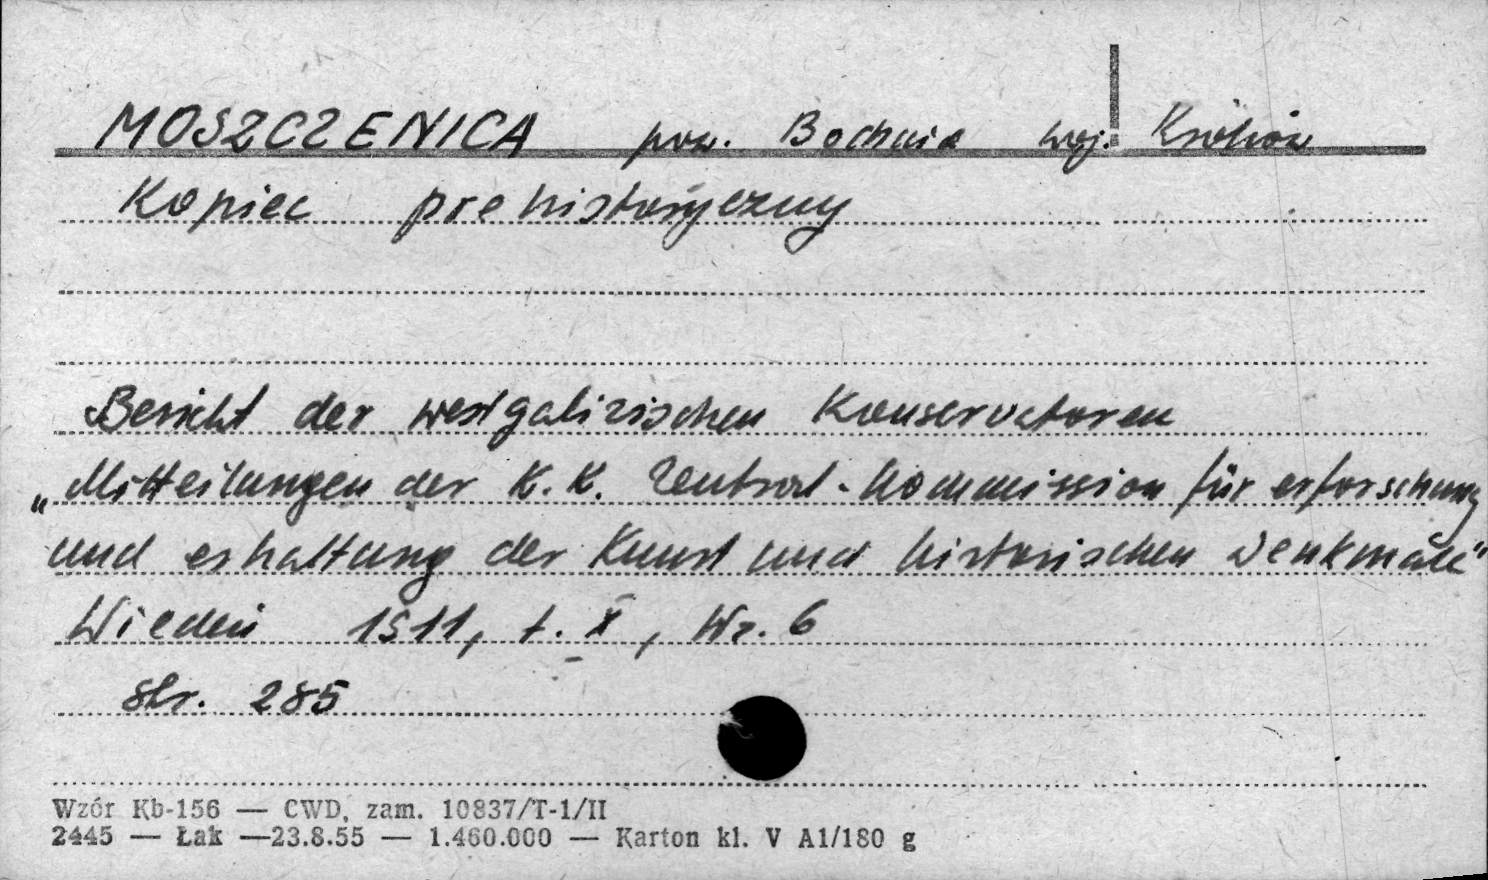 MOSZCZENICA pow. Bochnia woj. Kraków
Kopiec prehistoryczny
Bericht der westgalizischen Konservatoren
„Mitteilungen der K. K. Zentral-Kommission für erforschung
und erhaltung der Kunst und historischen Denkmale"
Wiedeń 1911, t. X, Nr. 6
str. 285
Wzór Kb-156 — CWD, zam. 10837/T-1/II
2445 — Łak —23.8.55 — 1.460.000 — Karton kl. V A1/180 g